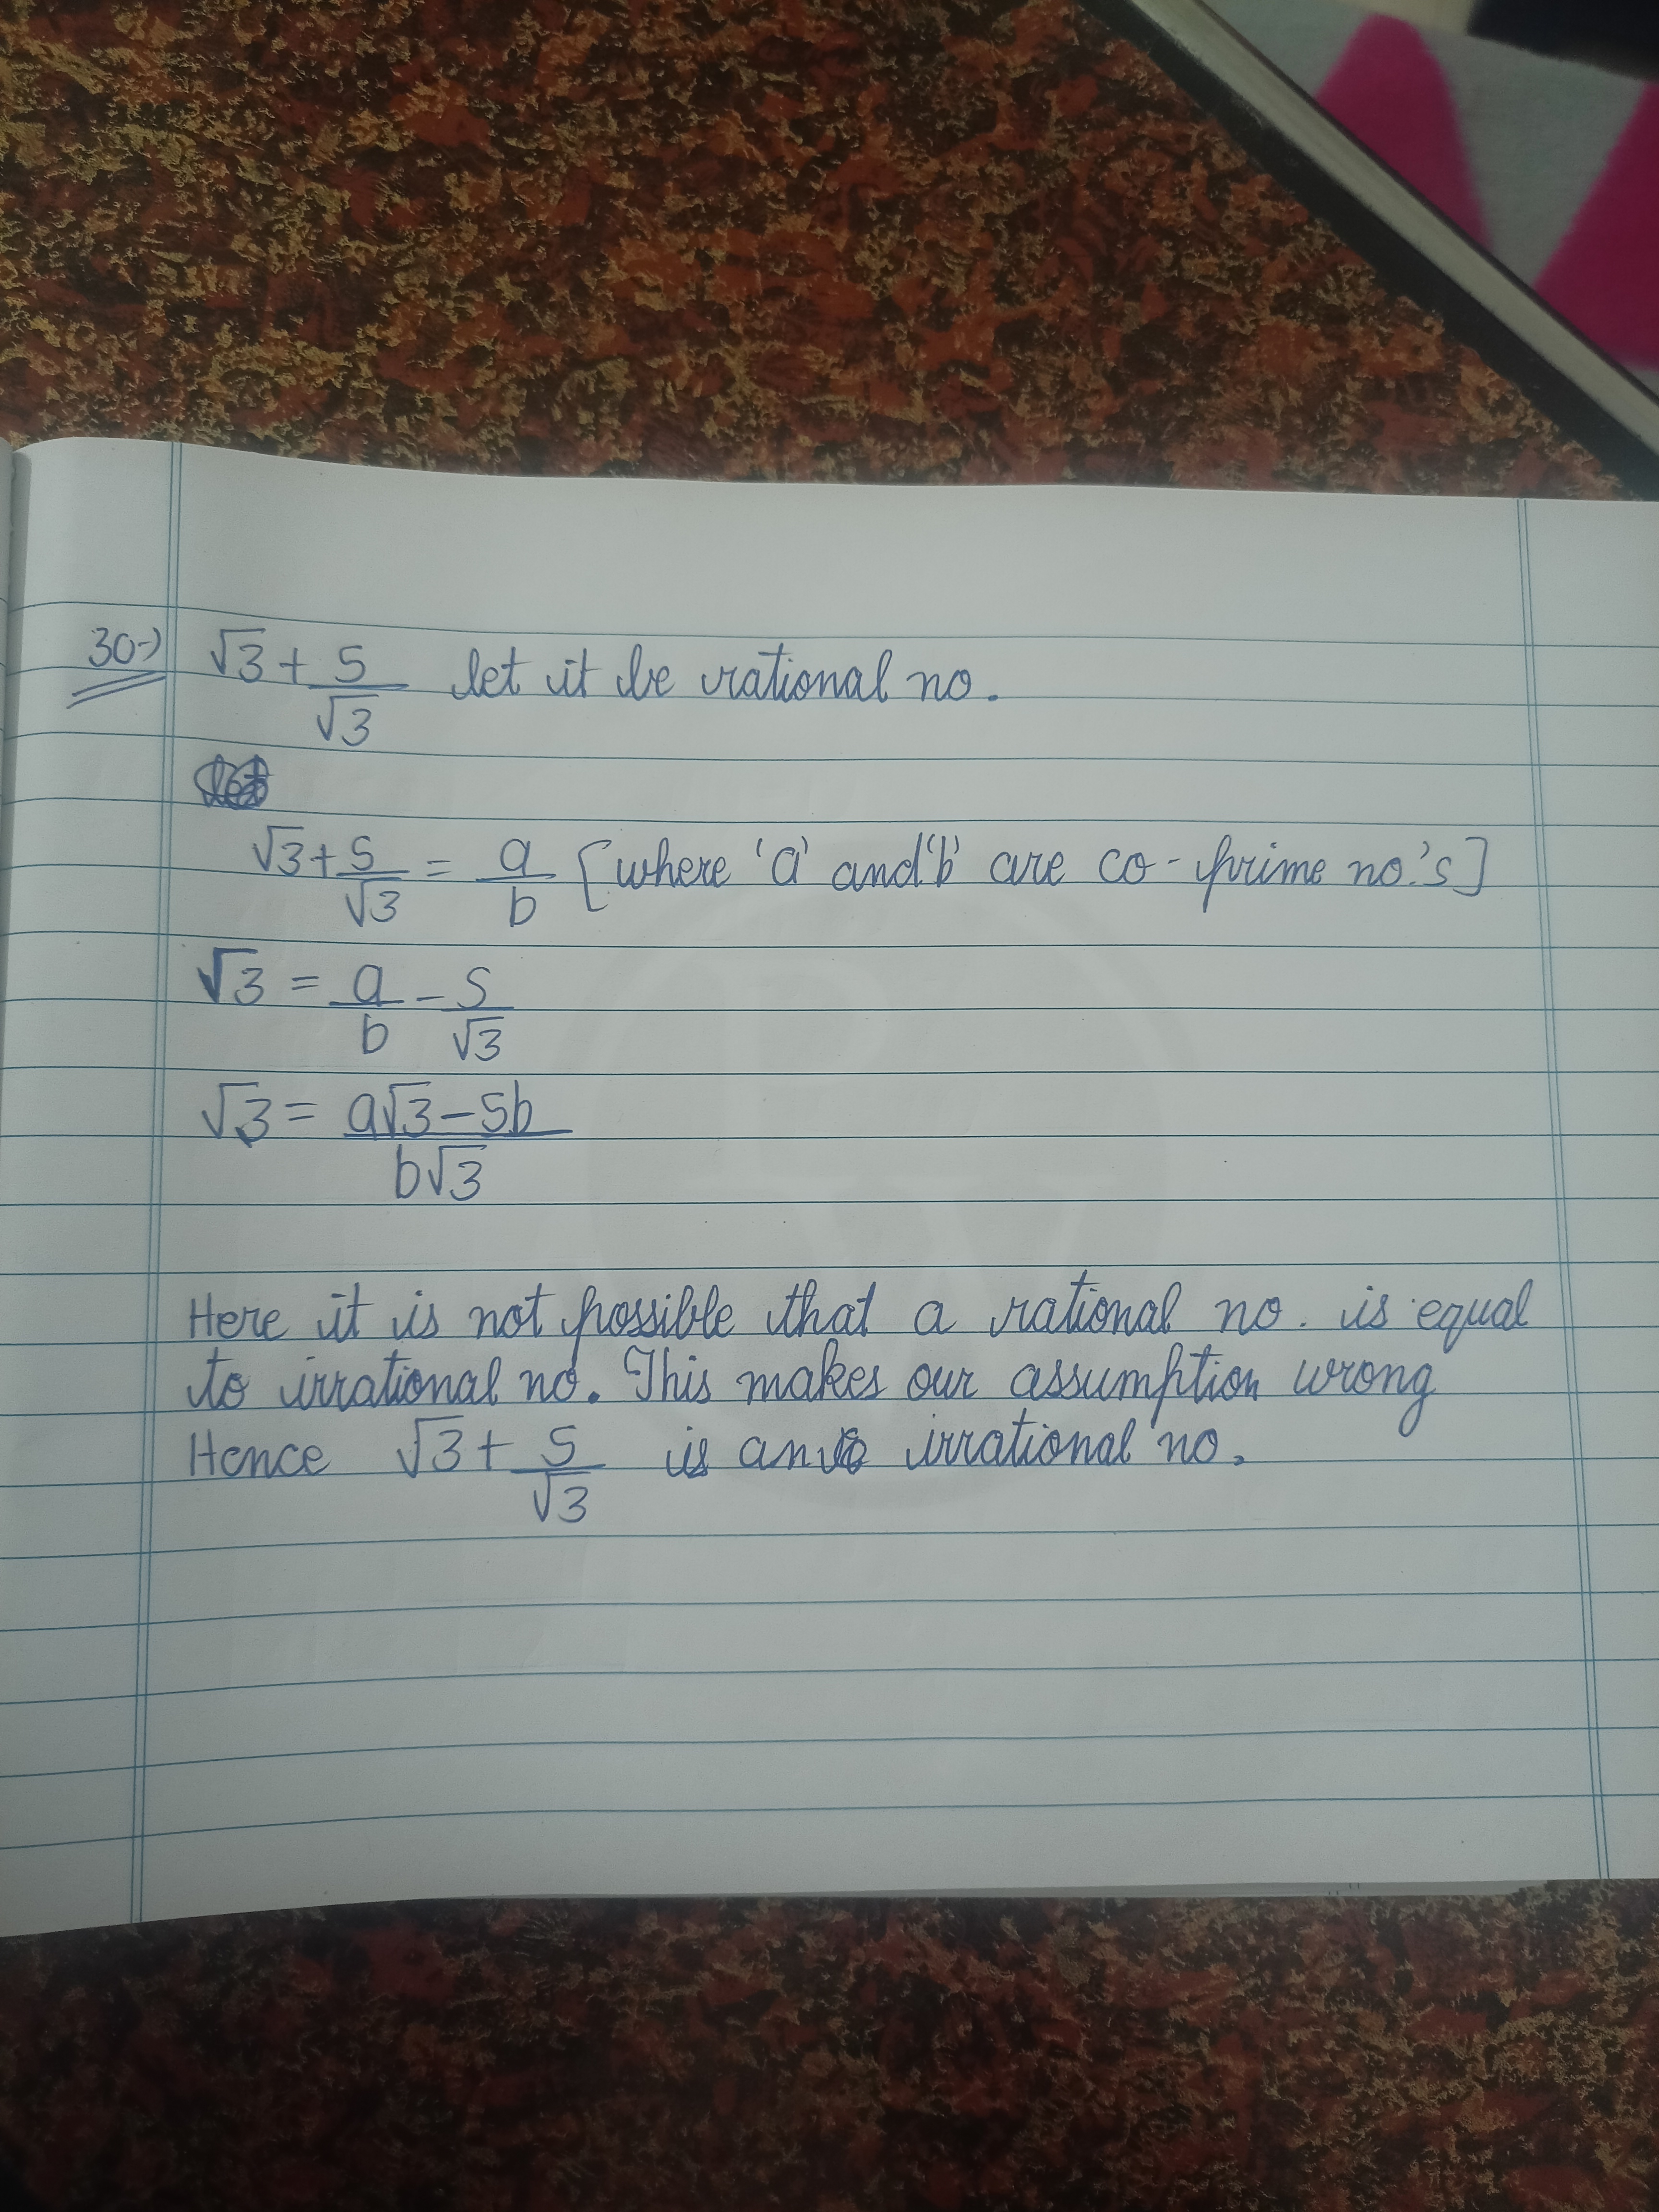 30→) √3 + 5/√3 let it be rational no.
√3 + 5/√3 = a/b [where 'a' and 'b' are co-prime no.'s]
√3 = a/b - 5/√3
√3 = a√3 - 5b / b√3
Here it is not possible that a rational no. is equal
to irrational no. This makes our assumption wrong
Hence √3 + 5/√3 is an irrational no.